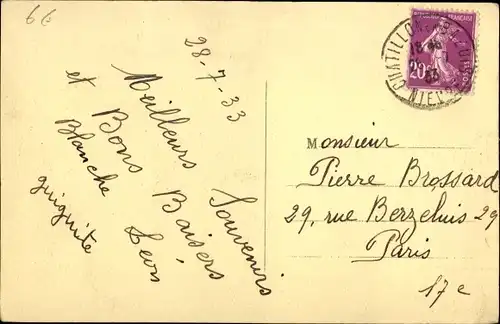 6€
28-7-33
Meilleurs Souvenirs
et Bons Baisers,
Blanche Leon
guiguite
RÉPUBLIQUE FRANÇAISE
20c
CHATILLON
NIEVRE
Monsieur
Pierre Brossard
29, rue Berzelius 29
Paris
17e